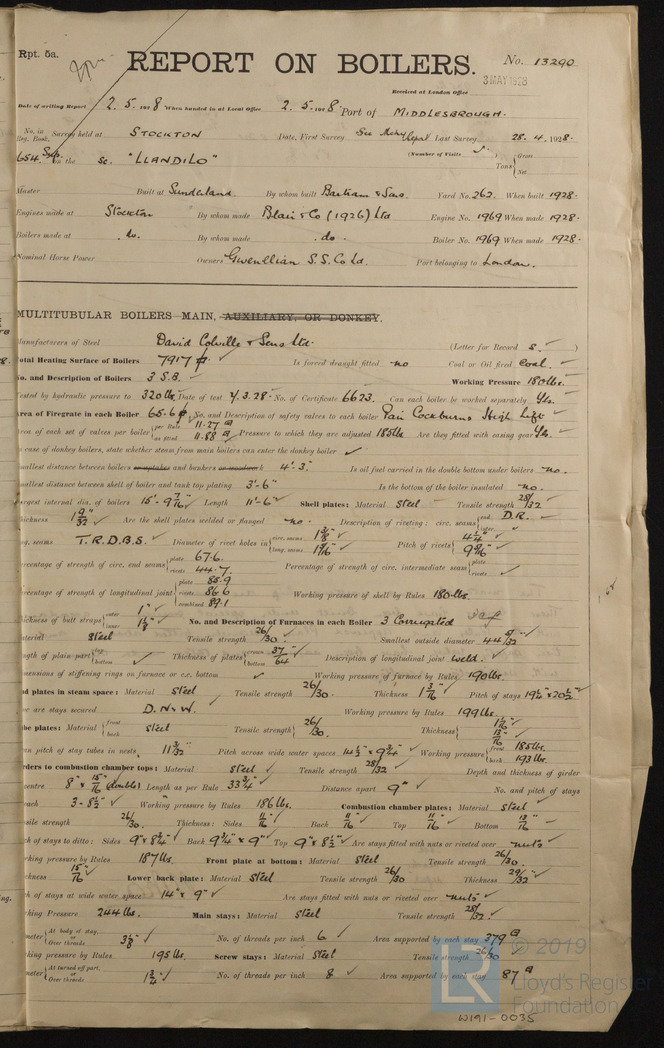 Rpt. 5a.
REPORT ON BOILERS.
No. 13290
Received at London Office
3 MAY 1928
Date of writing Report 2.5.1928 When handed in at Local Office 2.5.1928 Port of MIDDLESBROUGH.
No. in Reg. Book. Survey held at STOCKTON Date, First Survey See Mchy Repol Last Survey 28.4.1928.
654 Sup. on the Sc. "LLANDILO" (Number of Visits ) Tons Gross Net
Master Built at Sunderland By whom built Bartram & Sons Yard No. 262. When built 1928.
Engines made at Stockton By whom made Blair & Co (1926) Ltd Engine No. 1969 When made 1928.
Boilers made at do. By whom made do. Boiler No. 1969 When made 1928.
Nominal Horse Power Owners Gwenllian S.S. Co Ld. Port belonging to London.
MULTITUBULAR BOILERS—MAIN, AUXILIARY, OR DONKEY.
Manufacturers of Steel David Colville & Sons Ltd. (Letter for Record S.)
Total Heating Surface of Boilers 7917 Is forced draught fitted no Coal or Oil fired Coal.
No. and Description of Boilers 3 S.B. Working Pressure 180 lbs.
Tested by hydraulic pressure to 320 lbs. Date of test 4.3.28. No. of Certificate 6623. Can each boiler be worked separately Yes.
Area of Firegrate in each Boiler 65.6 No. and Description of safety valves to each boiler Pair Cockburns High Lift
Area of each set of valves per boiler per Rule 11.27 as fitted 11.88 Pressure to which they are adjusted 185 lbs Are they fitted with easing gear Yes.
In case of donkey boilers, state whether steam from main boilers can enter the donkey boiler ✓
Smallest distance between boilers or uptakes and bunkers or woodwork 4'-3" Is oil fuel carried in the double bottom under boilers no.
Smallest distance between shell of boiler and tank top plating 3'-6" Is the bottom of the boiler insulated no.
Largest internal dia. of boilers 15'-9 7/16" Length 11'-6" Shell plates: Material Steel Tensile strength 28/32
Thickness 1 9/32" Are the shell plates welded or flanged no. Description of riveting: circ. seams end D.R. inter.
long. seams T.R.D.B.S. Diameter of rivet holes in circ. seams 1 3/8" long. seams 1 5/16" Pitch of rivets 4 1/4" 9 3/16"
Percentage of strength of circ. end seams plate 67.6 rivets 44.7 Percentage of strength of circ. intermediate seam plate rivets ✓
Percentage of strength of longitudinal joint plate 85.9 rivets 86.6 combined 89.1 Working pressure of shell by Rules 180 lbs.
Thickness of butt straps outer 1" inner 1 1/8" No. and Description of Furnaces in each Boiler 3 Corrugated
Material Steel Tensile strength 26/30 Smallest outside diameter 44 5/32"
Length of plain part top bottom ✓ Thickness of plates crown bottom 37/64 Description of longitudinal joint weld.
Dimensions of stiffening rings on furnace or c.c. bottom ✓ Working pressure of furnace by Rules 190 lbs.
End plates in steam space: Material Steel Tensile strength 26/30. Thickness 1 3/16" Pitch of stays 19 1/4" x 20 1/2"
How are stays secured D.N.W. Working pressure by Rules 199 lbs.
Tube plates: Material front back Steel Tensile strength 26/30. Thickness 1 1/16" 13/16"
Mean pitch of stay tubes in nests 11 3/32" Pitch across wide water spaces 14 1/2" x 9 3/4" Working pressure front 185 lbs. back 193 lbs.
Girders to combustion chamber tops: Material Steel Tensile strength 28/32 Depth and thickness of girder
at centre 8" x 15/16" (double) Length as per Rule 33 3/4" Distance apart 9" No. and pitch of stays
in each 3 - 8 1/2" Working pressure by Rules 186 lbs. Combustion chamber plates: Material Steel
Tensile strength 26/30. Thickness: Sides 11/16" Back 11/16" Top 11/16" Bottom 13/16"
Pitch of stays to ditto: Sides 9" x 8 3/4" Back 9 3/4" x 9" Top 9" x 8 1/2" Are stays fitted with nuts or riveted over nuts
Working pressure by Rules 187 lbs. Front plate at bottom: Material Steel Tensile strength 26/30.
Thickness 15/16" Lower back plate: Material Steel Tensile strength 26/30 Thickness 29/32"
Pitch of stays at wide water space 14" x 9" Are stays fitted with nuts or riveted over nuts
Working Pressure 244 lbs. Main stays: Material Steel Tensile strength 28/32.
Diameter At body of stay, or Over threads 3 1/8" No. of threads per inch 6 Area supported by each stay 379
Working pressure by Rules 195 lbs. Screw stays: Material Steel Tensile strength 26/30
Diameter At turned off part, or Over threads 1 3/4" No. of threads per inch 8 Area supported by each stay 87
© 2019
LR
Lloyd's Register
Foundation
W191-0035